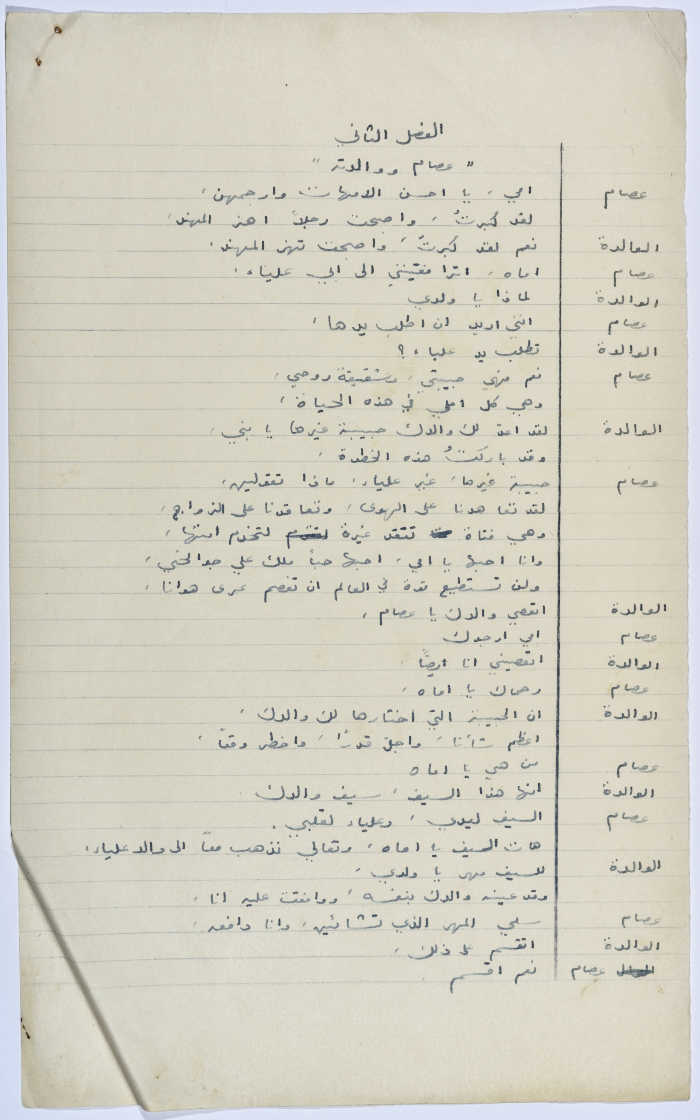 الفصل الثاني
" عصام ووالدته "
عصام امي ، يا احسن الامهات وارحمهن ،
لقد كبرتُ ، واصبحت رجلاً اهز المهند ،
الوالدة نعم لقد كبرتَ ، واصبحت تهز المهند ،
عصام اماه ، اترافقينني الى ابي علياء ،
الوالدة لماذا يا ولدي
عصام انني اريد ان اطلب يدها ،
الوالدة تطلب يد علياء ؟
عصام نعم فهي حبيبتي ، وشقيقة روحي ،
وهي كل املي في هذه الحياة ،
الوالدة لقد اعد لك والدك حبيبة غيرها يا بني ،
وقد باركتُ هذه الخطوة ،
عصام حبيبة غيرها ، غير علياء ، ماذا تقولين ،
لقد تعاهدنا على الهوى ، وتعاقدنا على الزواج ،
وهي فتاة تتقد غيرة لتخدم امتها ،
وانا احبها يا امي ، احبها حباً ملك علي جوانحي ،
ولن تستطيع قوة في العالم ان تفصم عرى هوانا ،
الوالدة اتعصي والدك يا عصام ،
عصام امي ارجوك
الوالدة اتعصيني انا ايضاً
عصام رحماك يا اماه ،
الوالدة ان الحبيبة التي اختارها لك والدك ،
اعظم شأنا ، واجل قدرًا ، واخطر وقعاً ،
عصام من هي يا اماه
الوالدة انها هذا السيف ، سيف والدك
عصام السيف ليدي ، وعلياء لقلبي .
هات السيف يا اماه ، وتعالي نذهب معاً الى والد علياء ،
الوالدة للسيف مهر يا ولدي ،
وقد عينه والدك بنفسه ، ووافقت عليه انا ،
عصام سلي المهر الذي تشائين ، وانا دافعه ،
الوالدة اتقسم على ذلك ،
عصام نعم اقسم